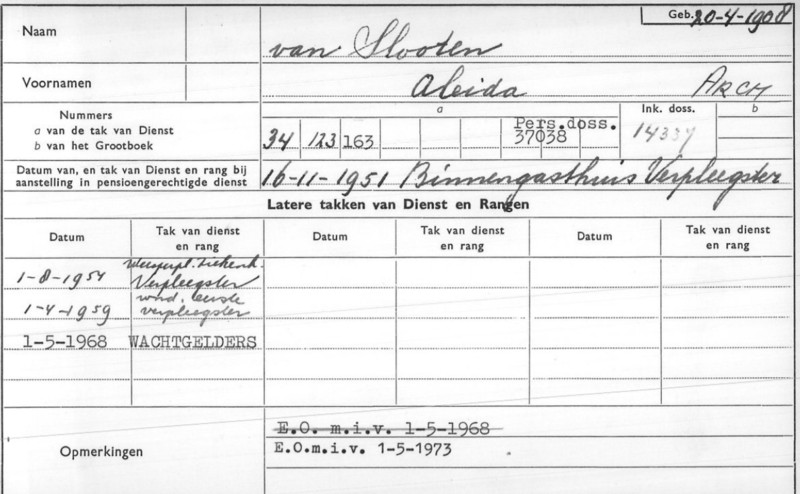 Geb. 20-4-1908
Naam van Slooten
Voornamen Aleida ARCH
Nummers a Ink. doss. b
a van de tak van Dienst Pers.doss.
b van het Grootboek 34 123 163 37038 14337
Datum van, en tak van Dienst en rang bij
aanstelling in pensioengerechtigde dienst 16-11-1951 Binnengasthuis Verpleegster
Latere takken van Dienst en Rangen
Datum Tak van dienst en rang Datum Tak van dienst en rang Datum Tak van dienst en rang
Weesperpl. Ziekenh.
1-8-1954 Verpleegster
wnd. eerste
1-4-1959 verpleegster
1-5-1968 WACHTGELDERS
E.O. m.i.v. 1-5-1968
Opmerkingen E.O.m.i.v. 1-5-1973